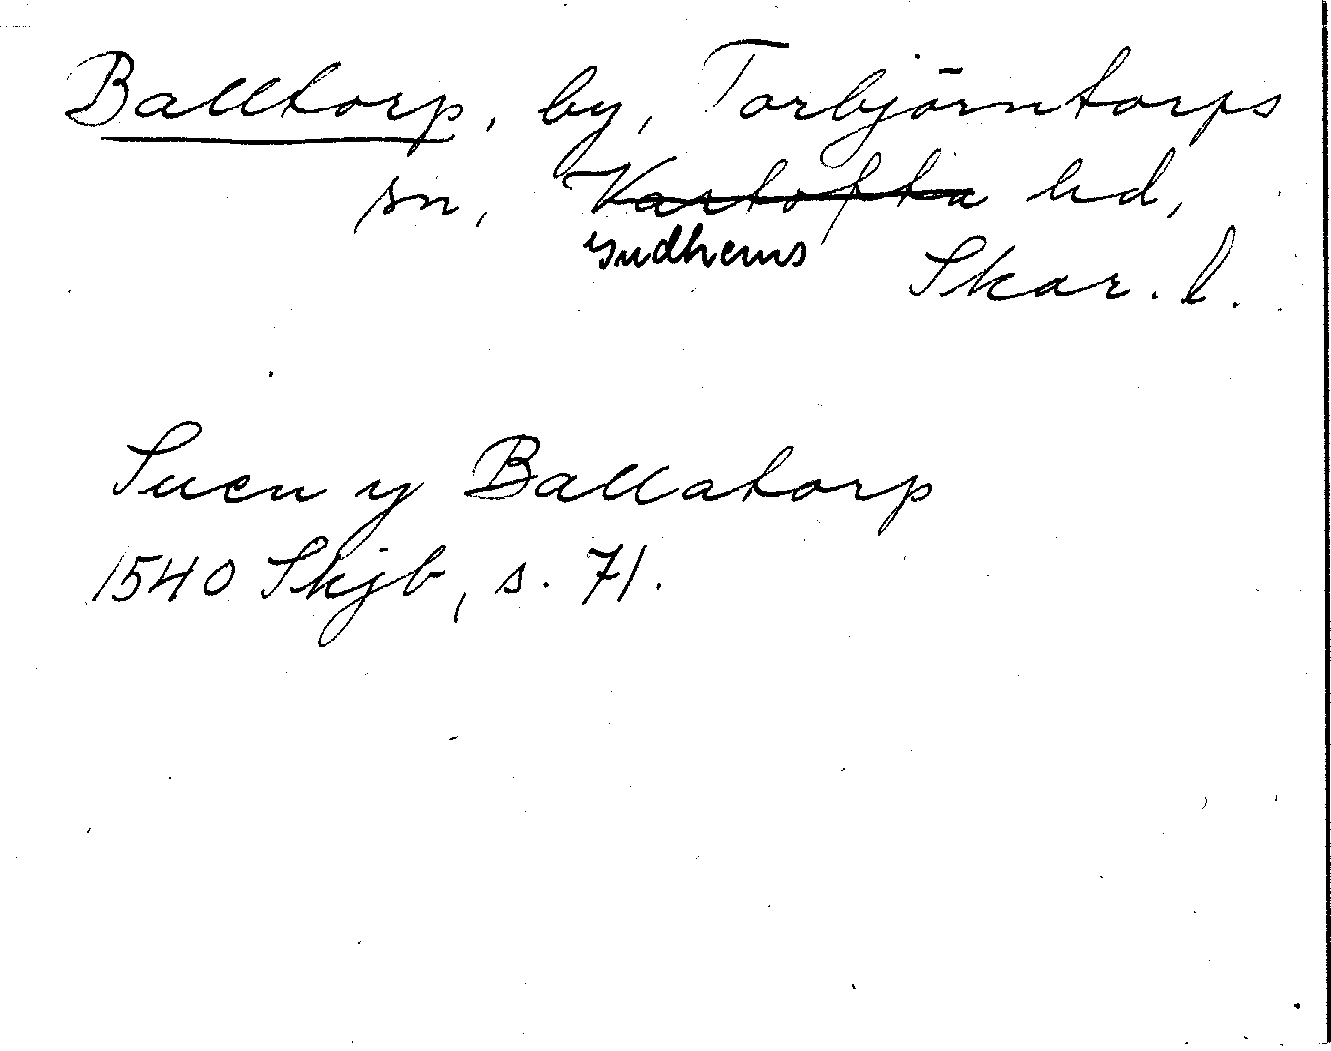 Balltorp, by, Torbjörntorps
sn, Vartofta hd,
Gudhems Skar. l.
Sven y Ballatorp
1540 Skjb, s. 71.